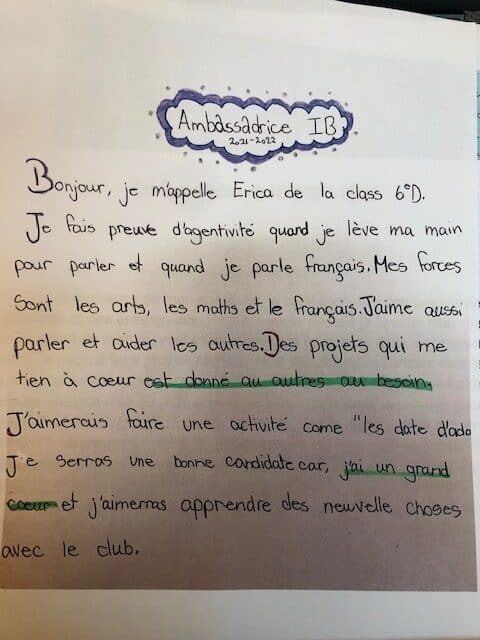 Ambassadrice IB
2021-2022
Bonjour, je m'appelle Erica de la class 6eD.
Je fais preuve d'agentivité quand je lève ma main
pour parler et quand je parle français. Mes forces
sont les arts, les maths et le français. J'aime aussi
parler et aider les autres. Des projets qui me
tien à coeur est donné au autres au besoin.
J'aimerais faire une activité come "les date d'ado
Je serras une bonne candidate car, j'ai un grand
coeur et j'aimerras apprendre des newvelle choses
avec le club.